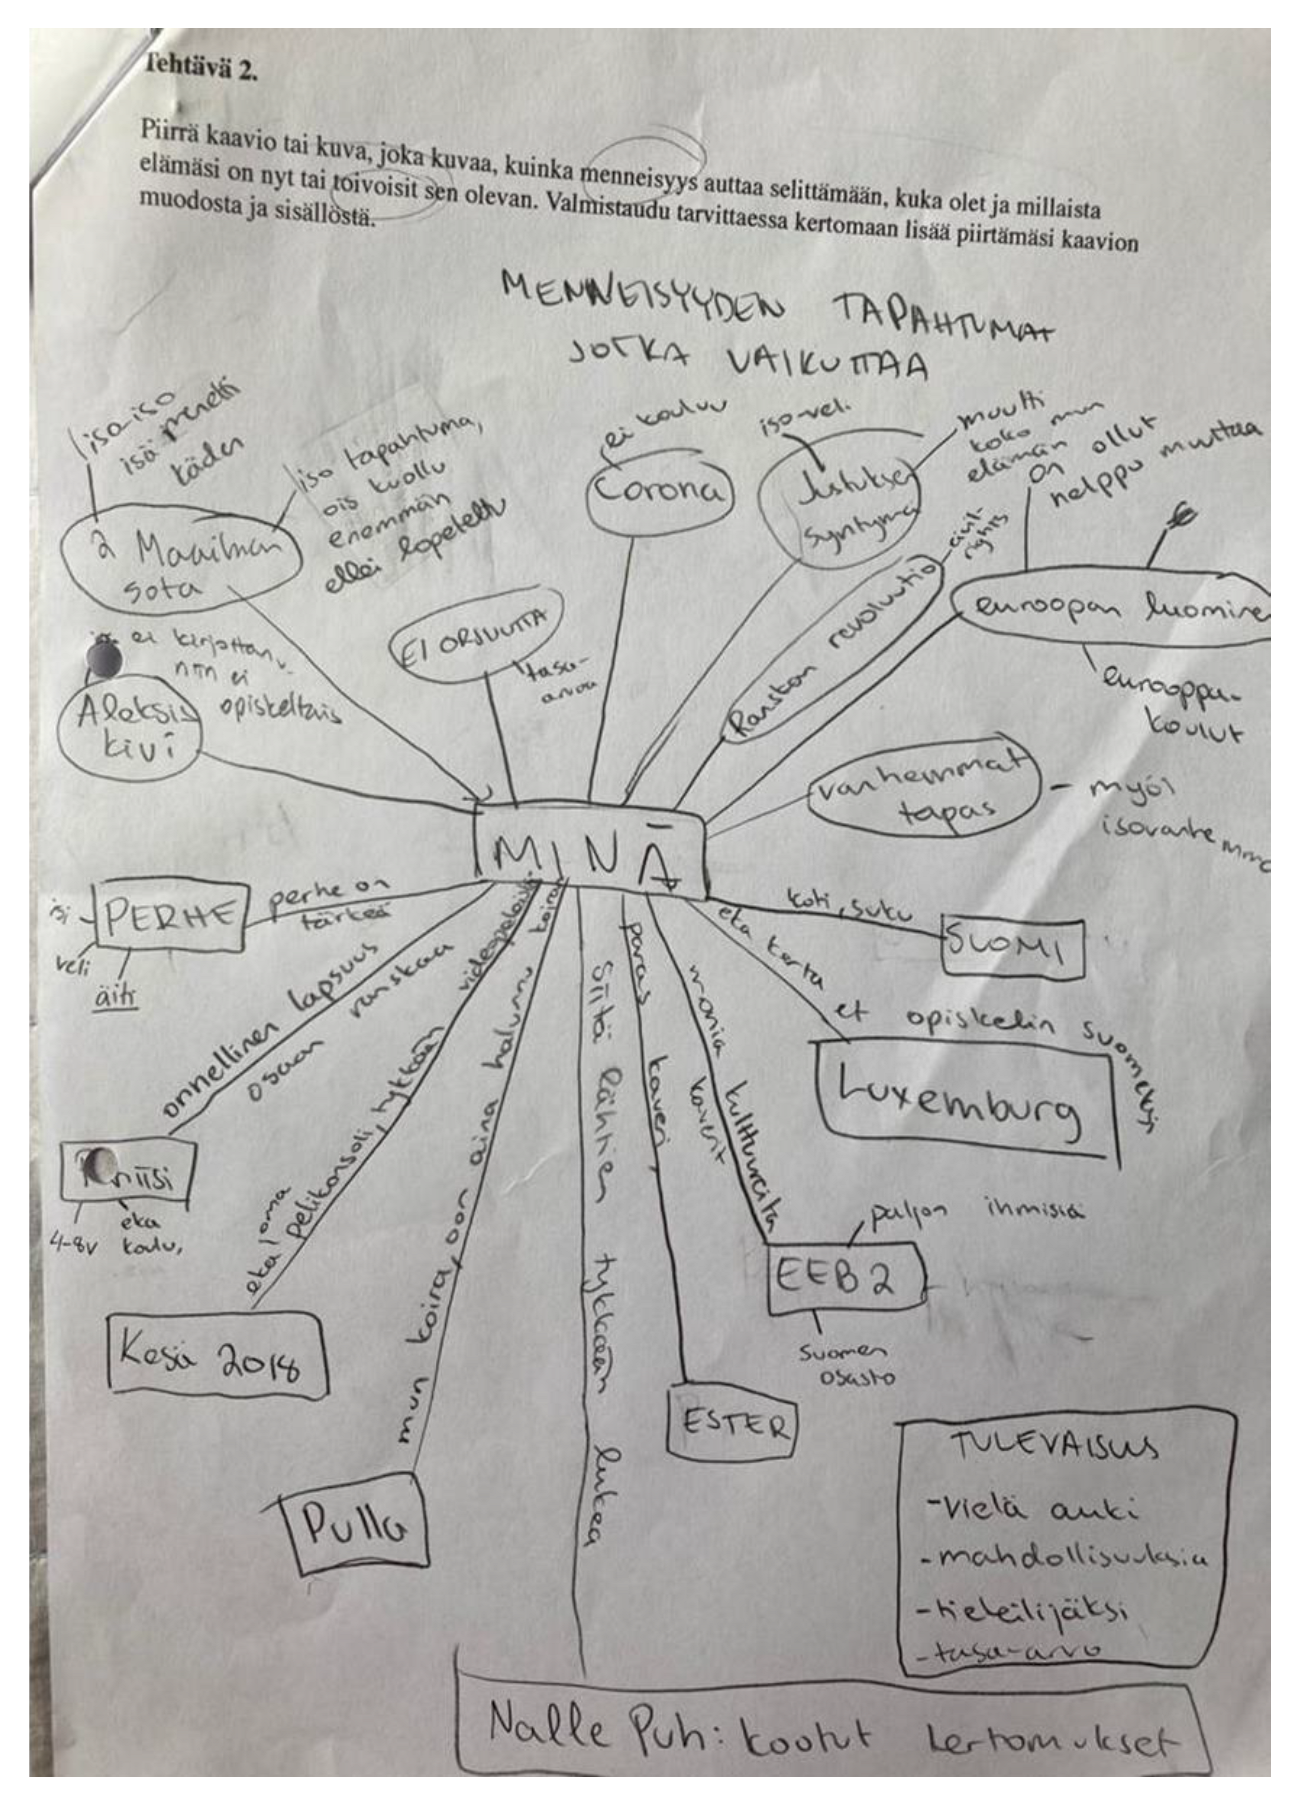 Tehtävä 2.
Piirrä kaavio tai kuva, joka kuvaa, kuinka menneisyys auttaa selittämään, kuka olet ja millaista
elämäsi on nyt tai toivoisit sen olevan. Valmistaudu tarvittaessa kertomaan lisää piirtämäsi kaavion
muodosta ja sisällöstä.
MENNEISYYDEN TAPAHTUMAT
JOTKA VAIKUTTAA
iso-iso
isä menetti
käden
iso tapahtuma,
ois kuollu
enemmän
ellei lopetettu
2 Maailman
sota
ei kouluu
Corona
iso-veli
Justuksen
syntymä
muutti
koko mun
elämän
on ollut
helppo muuttaa
€
euroopan luominen
eurooppa-
koulut
Ranskan revoluutio
civil-
rights
EI ORJUUTTA
tasa-
arvoa
ei kirjottanu
niin ei
opiskeltais
Aleksis
kivi
vanhemmat
tapas
myös
isovanhemmat
MINÄ
PERHE
perhe on
tärkeä
isi
veli
äiti
koti, suku
SUOMI
eka kerta et opiskelin suomeksi
Luxemburg
onnellinen lapsuus
osaan ranskaa
4-8v
eka
koulu,
eka oma
pelikonsoli, tykkään videopeleistä
Kesä 2018
mun koira, oon aina halunnu koiran
Pulla
Siitä lähtien tykkään lukea
Nalle Puh: kootut kertomukset
paras kaveri
ESTER
monia kulttuureita
kaverit
EEB2
paljon ihmisiä
suomen
osasto
TULEVAISUUS
-vielä auki
-mahdollisuuksia
-tieteilijäksi
-tasa-arvo